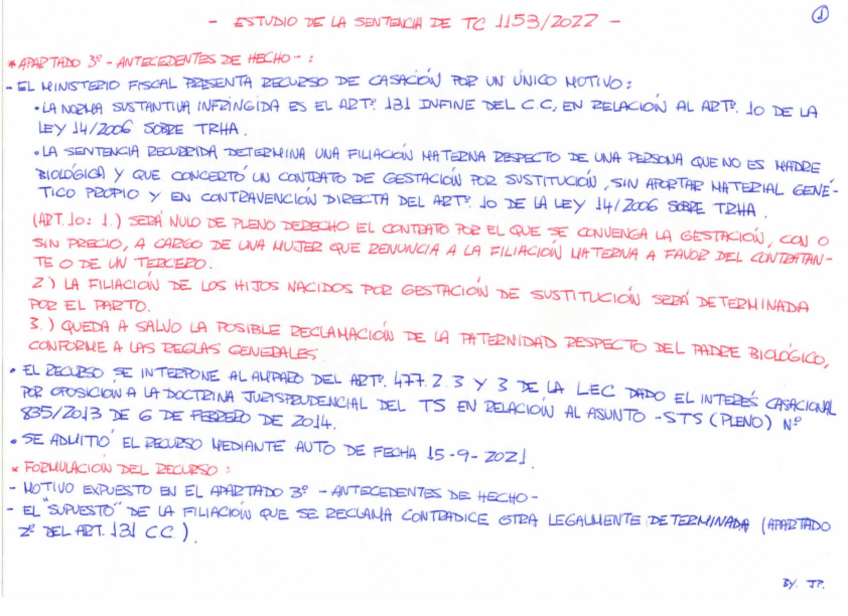 - ESTUDIO DE LA SENTENCIA DE TC 1153/2022 -
1
* APARTADO 3º - ANTECEDENTES DE HECHO - :
- EL MINISTERIO FISCAL PRESENTA RECURSO DE CASACIÓN POR UN ÚNICO MOTIVO:
• LA NORMA SUSTANTIVA INFRINGIDA ES EL ARTº. 131 INFINE DEL C.C, EN RELACIÓN AL ARTº. 10 DE LA
LEY 14/2006 SOBRE TRHA.
• LA SENTENCIA RECURRIDA DETERMINA UNA FILIACIÓN MATERNA RESPECTO DE UNA PERSONA QUE NO ES MADRE
BIOLÓGICA Y QUE CONCERTÓ UN CONTRATO DE GESTACIÓN POR SUSTITUCIÓN, SIN APORTAR MATERIAL GENÉ-
TICO PROPIO Y EN CONTRAVENCIÓN DIRECTA DEL ARTº. 10 DE LA LEY 14/2006 SOBRE TRHA.
(ART. 10: 1.) SERÁ NULO DE PLENO DERECHO EL CONTRATO POR EL QUE SE CONVENGA LA GESTACIÓN, CON O
SIN PRECIO, A CARGO DE UNA MUJER QUE RENUNCIA A LA FILIACIÓN MATERNA A FAVOR DEL CONTRATAN-
TE O DE UN TERCERO.
2.) LA FILIACIÓN DE LOS HIJOS NACIDOS POR GESTACIÓN DE SUSTITUCIÓN SERÁ DETERMINADA
POR EL PARTO.
3.) QUEDA A SALVO LA POSIBLE RECLAMACIÓN DE LA PATERNIDAD RESPECTO DEL PADRE BIOLÓGICO,
CONFORME A LAS REGLAS GENERALES.
• EL RECURSO SE INTERPONE AL AMPARO DEL ARTº. 477.2.3 Y 3 DE LA LEC DADO EL INTERÉS CASACIONAL
POR OPOSICIÓN A LA DOCTRINA JURISPRUDENCIAL DEL TS EN RELACIÓN AL ASUNTO -STS (PLENO) Nº
835/2013 DE 6 DE FEBRERO DE 2014.
• SE ADMITIÓ EL RECURSO MEDIANTE AUTO DE FECHA 15-9-2021.
* FORMULACIÓN DEL RECURSO:
- MOTIVO EXPUESTO EN EL APARTADO 3º - ANTECEDENTES DE HECHO -
- EL "SUPUESTO" DE LA FILIACIÓN QUE SE RECLAMA CONTRADICE OTRA LEGALMENTE DETERMINADA (APARTADO
2º DEL ART. 131 C.C.).
BY. JP.